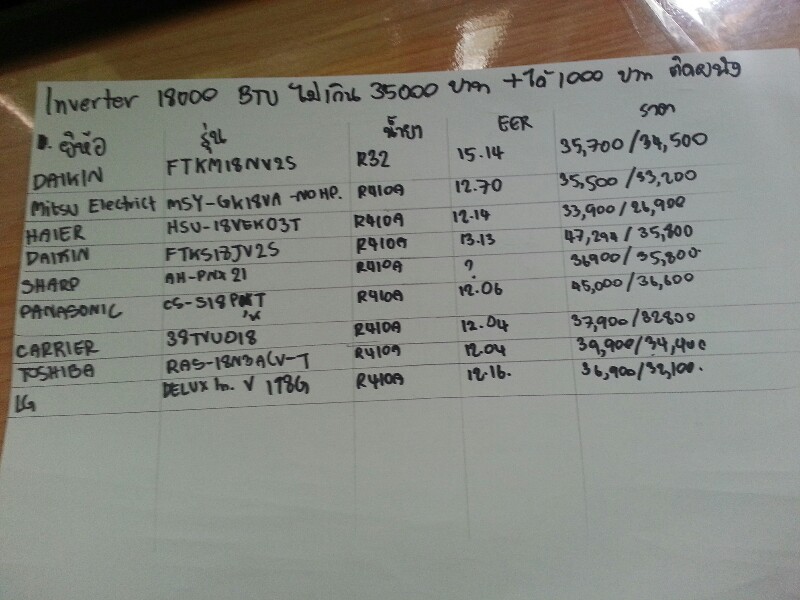 Inverter 18000 BTU ไม่เกิน 35000 บาท +ได้ 1000 บาท ติดผนัง
ยี่ห้อ รุ่น น้ำยา EER ราคา
DAIKIN FTKM18NV2S R32 15.14 35,700/34,500
Mitsu Electrict MSY-GK18VA -NO HP. R410A 12.70 35,500/33,200
HAIER HSU-18VEK03T R410A 12.14 33,900/26,900
DAIKIN FTKS18JV2S R410A 13.13 47,294/35,800
SHARP AH-PNX21 R410A ? 36900/35,800
PANASONIC CS-S18PKT R410A 12.06 45,000/36,600
CARRIER 39TVU018 R410A 12.04 37,900/32800
TOSHIBA RAS-18N3ACV-T R410A 12.04 39,900/34,400
LG DELUX In. V 178G R410A 12.16. 36,900/32,100.